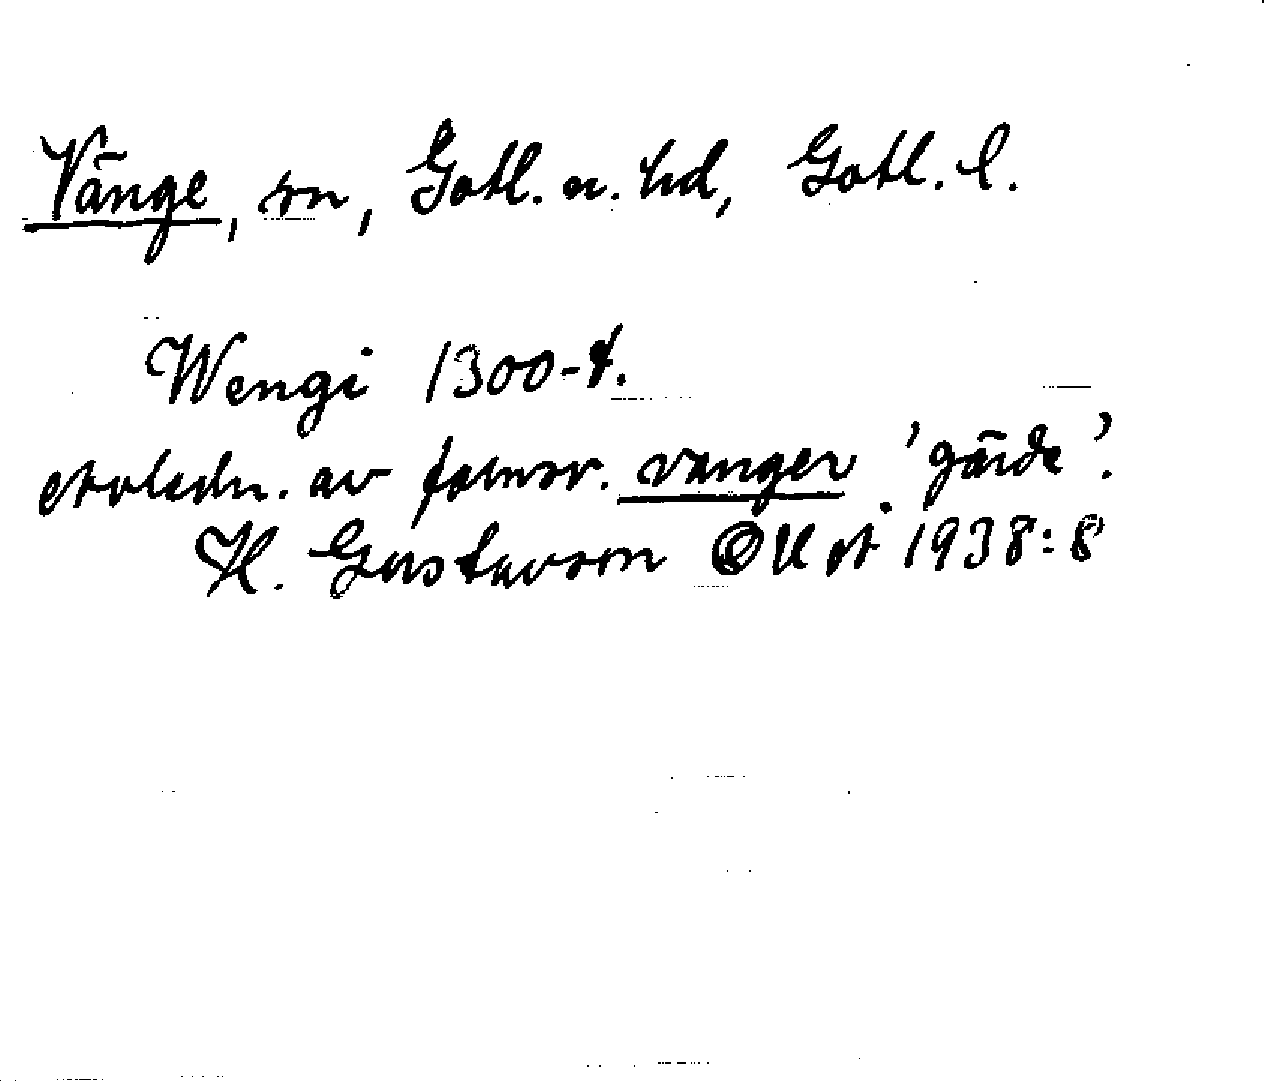 Vänge, sn, Gotl. n. hd, Gotl. l.
Wengi 1300-t.
avledn. av fornsv. vanger 'gärde'.
H. Gustavson 1938:8